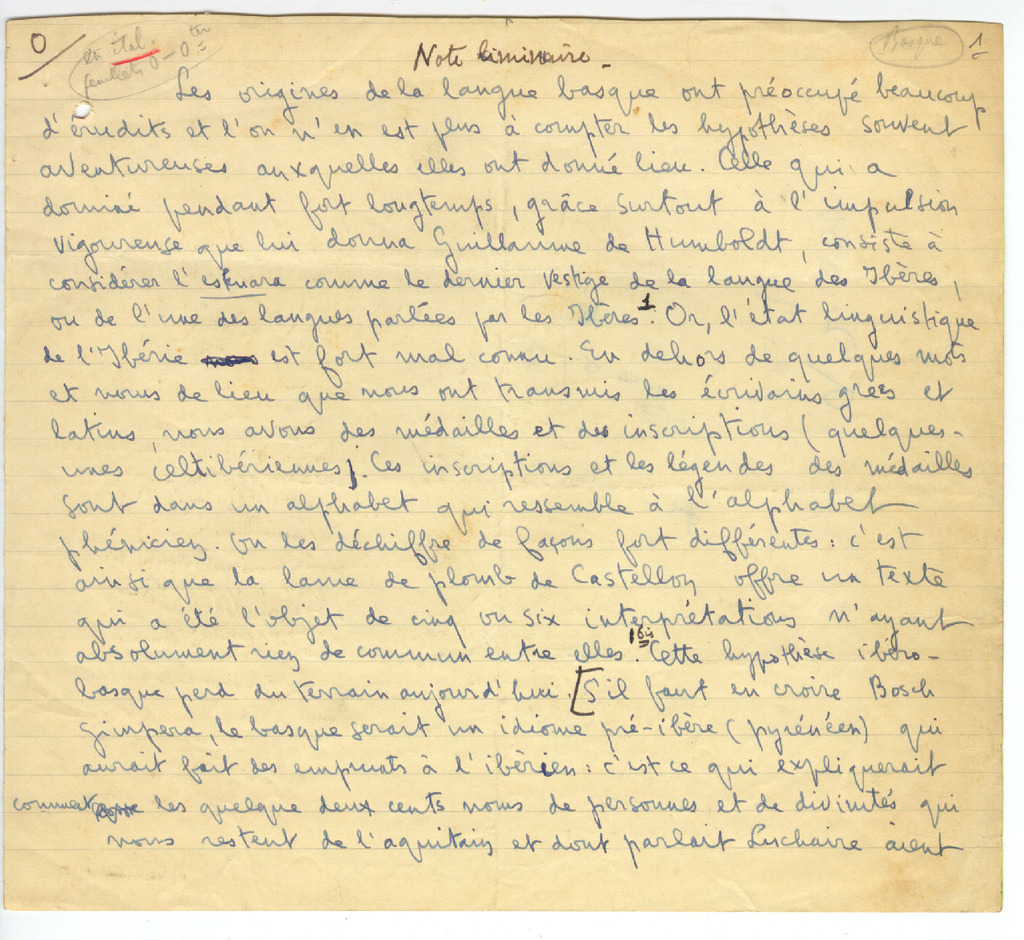 0
en ital.
feuillets 0 - 0ter
Basque
1
Note liminaire -
Les origines de la langue basque ont préoccupé beaucoup
d'érudits et l'on n'en est plus à compter les hypothèses souvent
aventureuses auxquelles elles ont donné lieu. Celle qui a
dominé pendant fort longtemps, grâce surtout à l'impulsion
vigoureuse que lui donna Guillaume de Humboldt, consiste à
considérer l'eskuara comme le dernier vestige de la langue des Ibères,
ou de l'une des langues parlées par les Ibères 1. Or, l'état linguistique
de l'Ibérie est fort mal connu. En dehors de quelques mots
et noms de lieu que nous ont transmis les écrivains grecs et
latins, nous avons des médailles et des inscriptions (quelques-
unes celtibériennes). Ces inscriptions et les légendes des médailles
sont dans un alphabet qui ressemble à l'alphabet
phénicien. On les déchiffre de façons fort différentes : c'est
ainsi que la lame de plomb de Castellon offre un texte
qui a été l'objet de cinq ou six interprétations n'ayant
absolument rien de commun entre elles 1bis. Cette hypothèse ibéro-
basque perd du terrain aujourd'hui. [S'il faut en croire Bosch
Gimpera, le basque serait un idiome pré-ibère (pyrénéen) qui
aurait fait des emprunts à l'ibérien : c'est ce qui expliquerait
comment les quelque deux cents noms de personnes et de divinités qui
nous restent de l'aquitain et dont parlait Luchaire aient